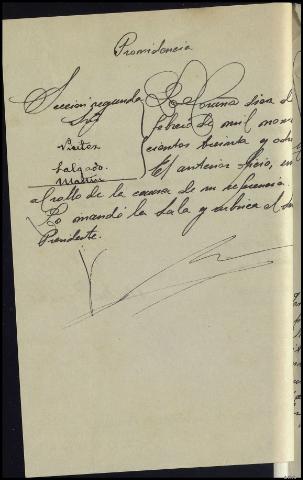 Providencia
Sección segunda
Sres
Visitos
Salgado.
Coruña diez de
febrero de mil nove
cientos treinta y och
El anterior oficio, un
al rollo de la causa de su referencia.
Lo mandó la Sala y rubrica el Sr
Presidente.